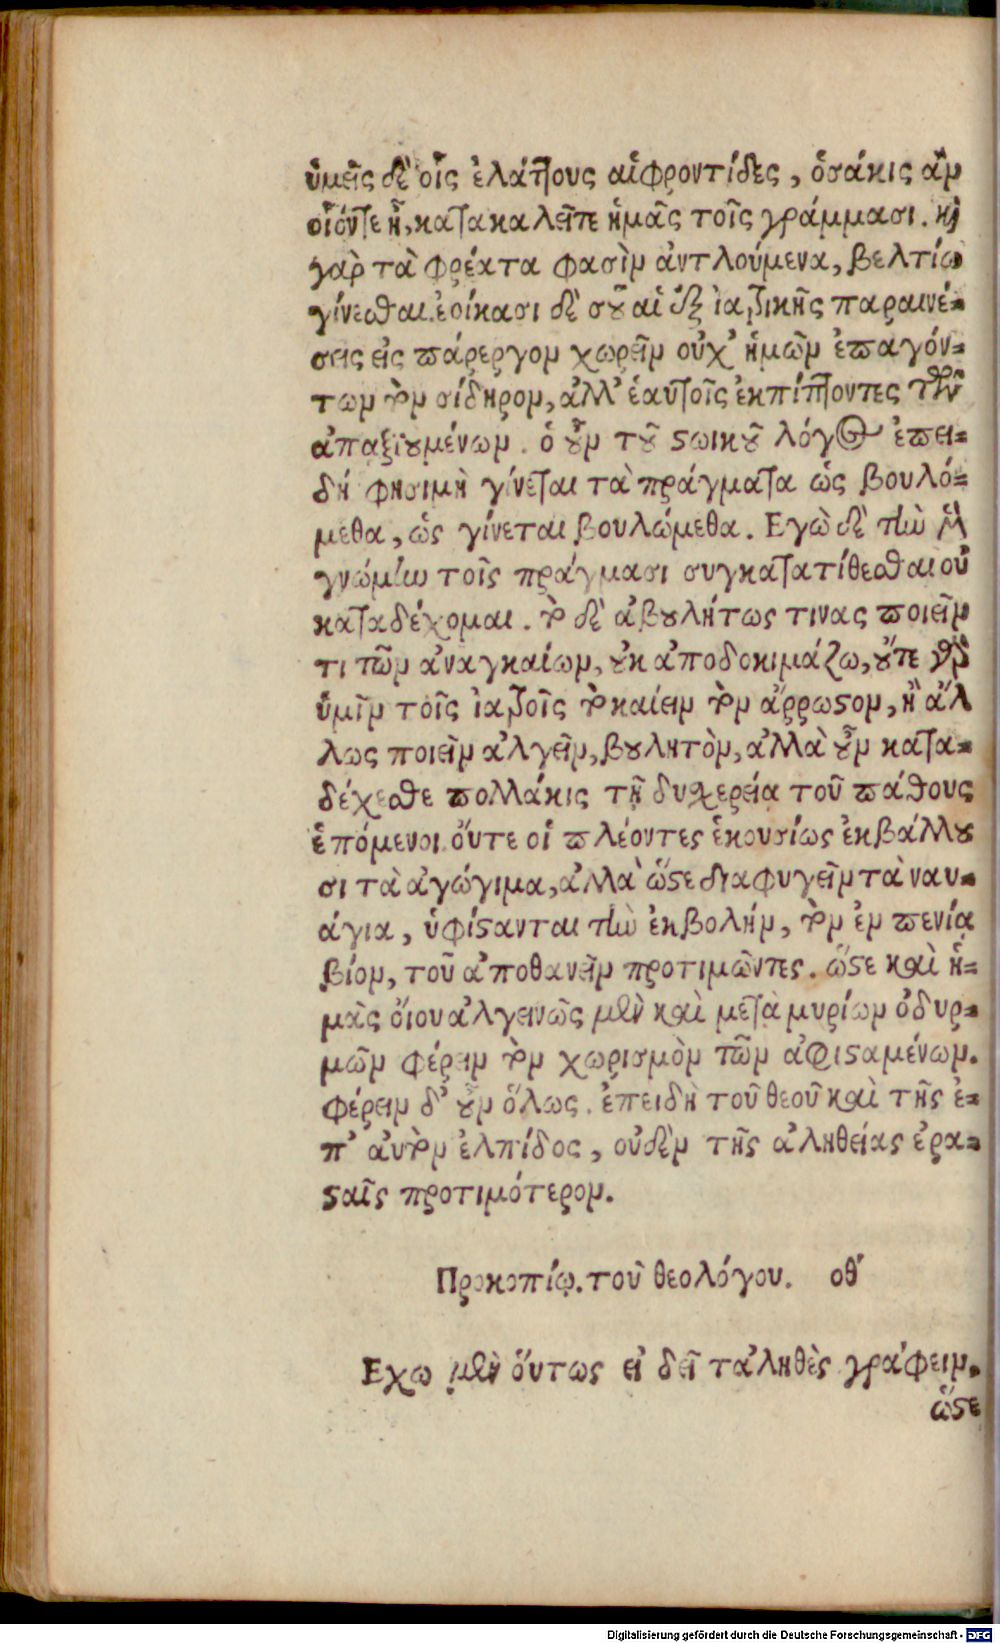 ὑμεῖς δὲ οἷς ἐλάττους αἱ φροντίδες, ὁσάκις ἂν
οἷόντε ᾖ, κατακαλεῖτε ἡμᾶς τοῖς γράμμασι. καὶ
γὰρ τὰ φρέατα φασὶν ἀντλούμενα, βελτίω
γίνεσθαι. ἐοίκασι δὲ σου αἱ ἐξ ἰατρικῆς παραινέ-
σεις εἰς πάρεργον χωρεῖν οὐχ' ἡμῶν ἐπαγόν-
των τὸν σίδηρον, ἀλλ' ἑαυτοῖς ἐκπίπτοντες τῶν
ἀπαξιουμένων. ὁ οὖν τοῦ στωικοῦ λόγος ἐπει-
δὴ φησι μὴ γίνεται τὰ πράγματα ὡς βουλό-
μεθα, ὡς γίνεται βουλώμεθα. Εγὼ δὲ τὴν μὲν
γνώμην τοῖς πράγμασι συγκατατίθεσθαι οὐ
καταδέχομαι. τὸ δὲ ἀβουλήτως τινας ποιεῖν
τι τῶν ἀναγκαίων, οὐκ ἀποδοκιμάζω, οὔτε γὰρ
ὑμῖν τοῖς ἰατροῖς τὸ καίειν τὸν ἄρρωστον, ἢ ἄλ
λως ποιεῖν ἀλγεῖν, βουλητὸν, ἀλλὰ οὖν κατα-
δέχεσθε πολλάκις τῇ δυσχερείᾳ τοῦ πάθους
ἑπόμενοι. οὔτε οἱ πλέοντες ἑκουσίως ἐκβάλλου
σι τὰ ἀγώγιμα, ἀλλὰ ὥστε διαφυγεῖν τὰ ναυ-
άγια, ὑφίστανται τὴν ἐκβολήν, τὸν ἐν πενίᾳ
βίον, τοῦ ἀποθανεῖν προτιμῶντες. ὥστε καὶ ἡ-
μᾶς οἴου ἀλγεινῶς μὲν καὶ μετὰ μυρίων ὀδυρ-
μῶν φέρειν τὸν χωρισμὸν τῶν ἀφισταμένων.
φέρειν δ' οὖν ὅλως. ἐπειδὴ τοῦ θεοῦ καὶ τῆς ἐ-
π' αὐτὸν ἐλπίδος, οὐδὲν τῆς ἀληθείας ἐρα-
σταῖς προτιμότερον.
Προκοπίῳ. τοῦ θεολόγου. οθ'
Εχω μὲν ὅυτως εἰ δεῖ τἀληθὲς γράφειν.
ὥστε
Digitalisierung gefördert durch die Deutsche Forschungsgemeinschaft - DFG